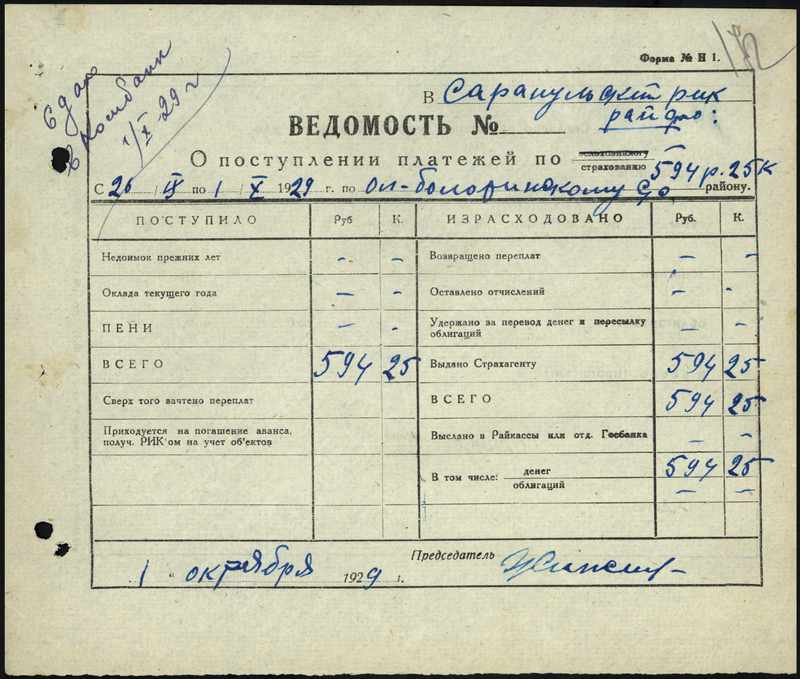 Форма № Н 1.
Сдано
в Госбанк
1/X 29 г
В Сарапульский рик
райфо:
ВЕДОМОСТЬ №
О поступлении платежей по страхованию 594 р. 25 к
С 26 IX по 1 X 1929 г. по району.
ПОСТУПИЛО Руб К. ИЗРАСХОДОВАНО Руб. К.
Недоимок прежних лет – – Возвращено переплат – –
Оклада текущего года – – Оставлено отчислений – –
ПЕНИ – – Удержано за перевод денег и пересылку
облигаций – –
ВСЕГО 594 25 Выдано Страхагенту 594 25
Сверх того зачтено переплат ВСЕГО 594 25
Приходуется на погашение аванса,
получ. РИК'ом на учет об'ектов
Выслано в Райкассы или отд. Госбанка – –
В том числе: денег 594 25
облигаций – –
1 " октября 1929 г.
Председатель